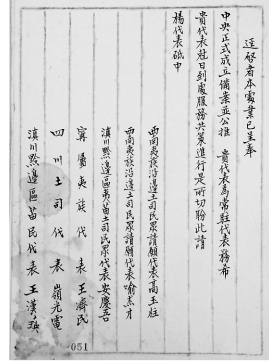 逕啓者本處業已呈奉
中央正式成立備案並公推 貴代表為常駐代表務希
貴代表尅日到處服務共策進行是所切盼此請
楊代表砥中
西南夷族沿邊土司民眾請願代表高玉柱
西南夷族沿邊土司民眾請願代表喻杰才
滇川黔邊區夷苗土司民眾代表安慶吾
寧屬夷族代表王濟民
四川土司代表嶺光電
滇川黔邊區苗民代表王漢
051